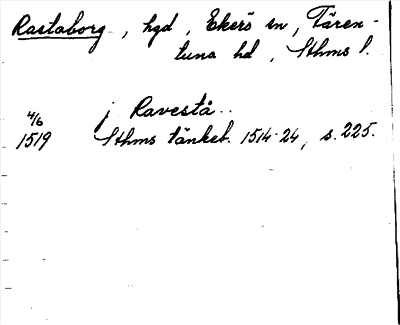 Rastaborg, hgd, Ekerö sn, Fären-
tuna hd, Sthms l.
j Ravestå..
4/6
1519 Sthms tänkeb. 1514-24, s. 225.